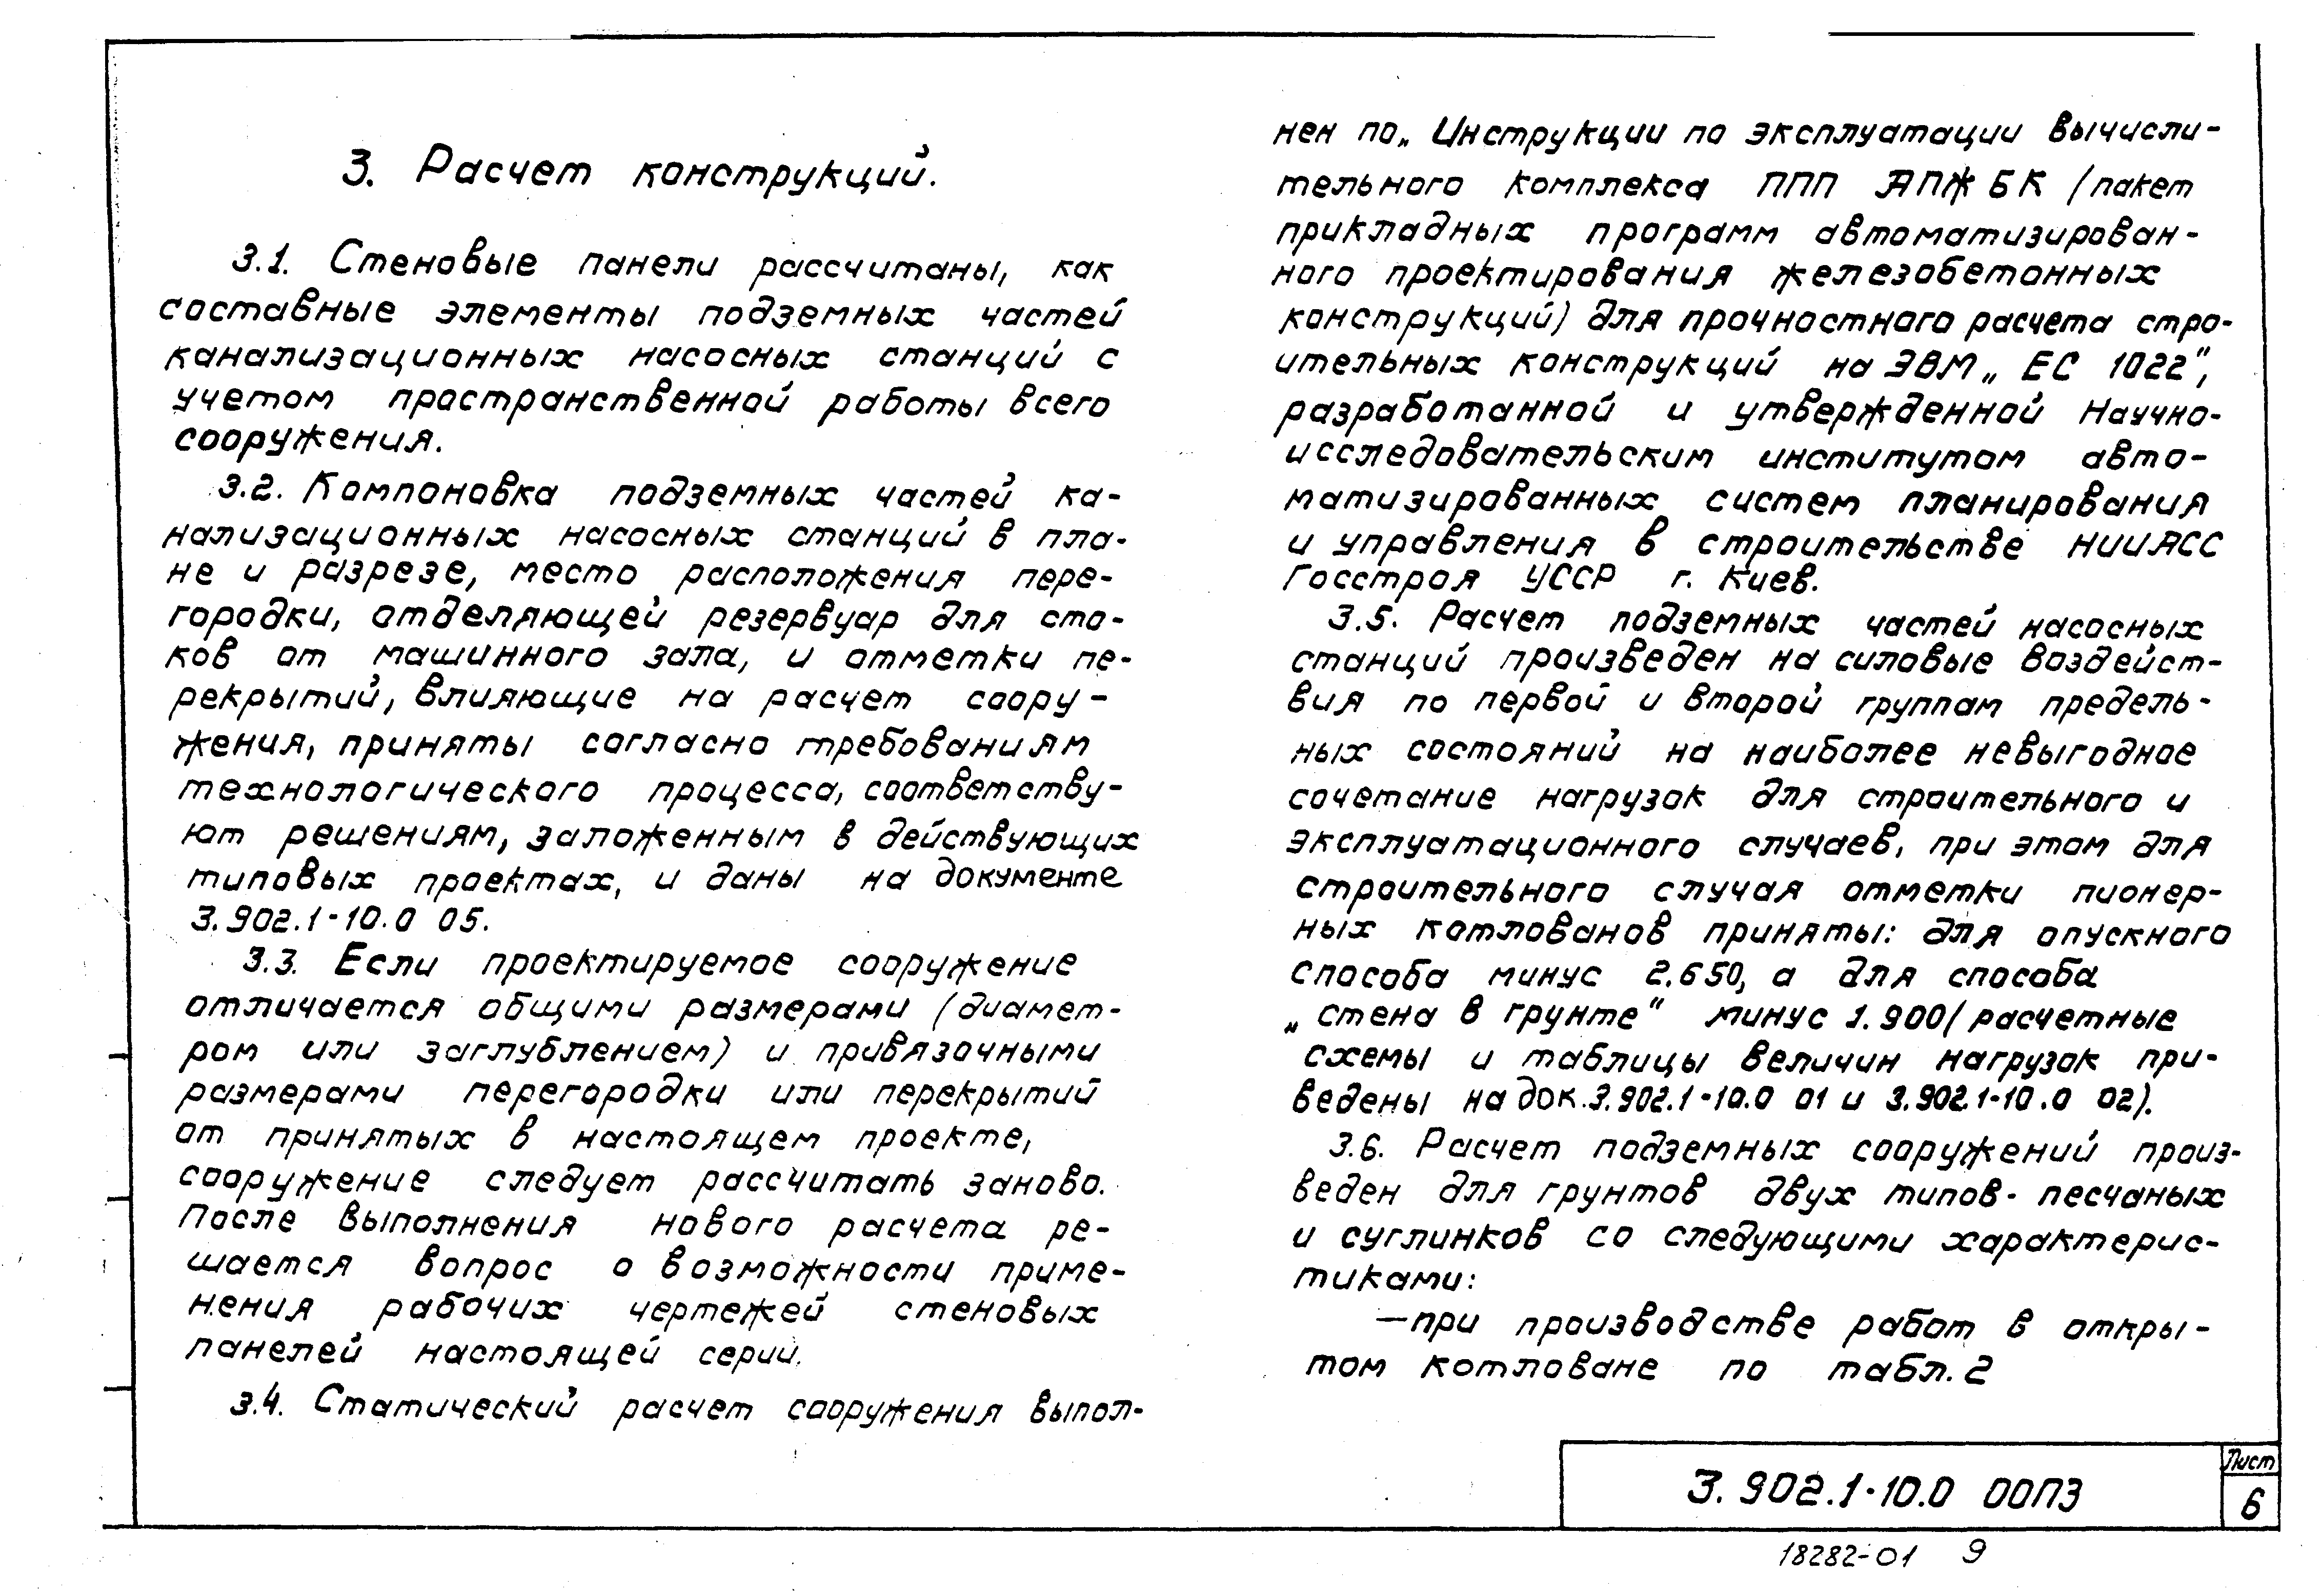 3. Расчет конструкций.
3.1. Стеновые панели рассчитаны, как
составные элементы подземных частей
канализационных насосных станций с
учетом пространственной работы всего
сооружения.
3.2. Компоновка подземных частей ка-
нализационных насосных станций в пла-
не и разрезе, место расположения пере-
городки, отделяющей резервуар для сто-
ков от машинного зала, и отметки пе-
рекрытий, влияющие на расчет соору-
жения, приняты согласно требованиям
технологического процесса, соответству-
ют решениям, заложенным в действующих
типовых проектах, и даны на документе
3.902.1-10.0 05.
3.3. Если проектируемое сооружение
отличается общими размерами (диамет-
ром или заглублением) и привязочными
размерами перегородки или перекрытий
от принятых в настоящем проекте,
сооружение следует рассчитать заново.
После выполнения нового расчета ре-
шается вопрос о возможности приме-
нения рабочих чертежей стеновых
панелей настоящей серии.
3.4. Статический расчет сооружения выпол-
нен по „Инструкции по эксплуатации вычисли-
тельного комплекса ППП АПЖБК (пакет
прикладных программ автоматизирован-
ного проектирования железобетонных
конструкций) для прочностного расчета стро-
ительных конструкций на ЭВМ „ЕС 1022",
разработанной и утвержденной Научно-
исследовательским институтом авто-
матизированных систем планирования
и управления в строительстве НИИАСС
Госстроя УССР г. Киев.
3.5. Расчет подземных частей насосных
станций произведен на силовые воздейст-
вия по первой и второй группам предель-
ных состояний на наиболее невыгодное
сочетание нагрузок для строительного и
эксплуатационного случаев, при этом для
строительного случая отметки пионер-
ных котлованов приняты: для опускного
способа минус 2.650, а для способа
„стена в грунте" минус 1.900 (расчетные
схемы и таблицы величин нагрузок при-
ведены на док. 3.902.1-10.0 01 и 3.902.1-10.0 02).
3.6. Расчет подземных сооружений произ-
веден для грунтов двух типов - песчаных
и суглинков со следующими характерис-
тиками:
—при производстве работ в откры-
том котловане по табл. 2
3.902.1-10.0 00ПЗ
Лист
6
18282-01 9